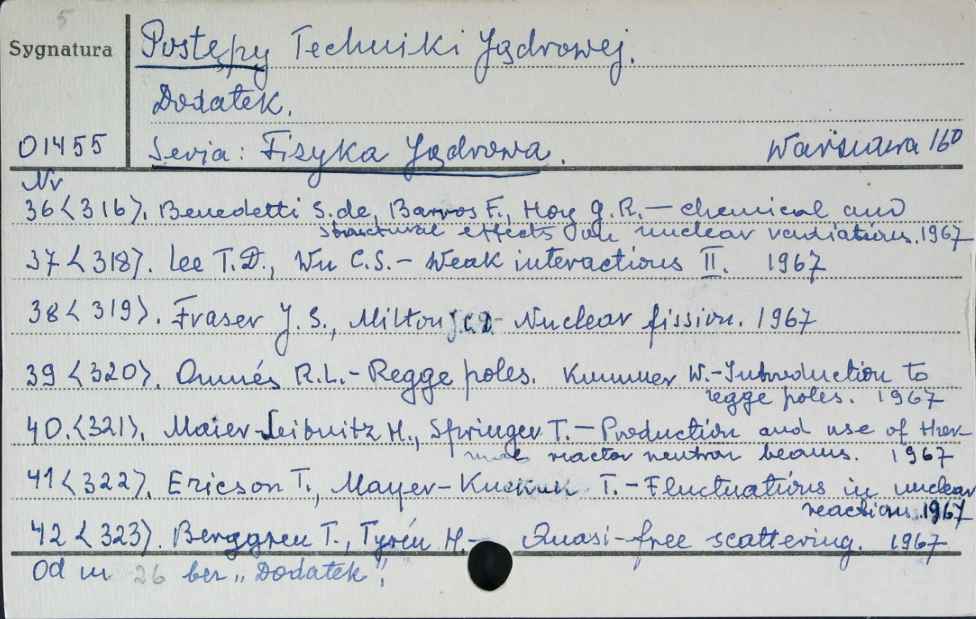 5
Sygnatura
Postępy Techniki Jądrowej.
Dodatek.
01455 Seria: Fizyka Jądrowa. Warszawa 160
Nr
36<316>. Benedetti S.de, Barros F., Hoy G.R. — chemical and
structural effects on nuclear radiations. 1967
37<318>. Lee T.D., Wu C.S. — Weak interactions II. 1967
38<319>. Fraser J.S., Milton J.C.D. Nuclear fission. 1967
39<320>. Omnés R.L. - Regge poles. Kummer W. - Introduction to
regge poles. 1967
40.<321>. Maier-Leibnitz H., Springer T. — Production and use of ther
mal reactor neutron beams. 1967
41<322>. Ericson T., Mayer-Kuckuk T. - Fluctuations in nuclear
reactions. 1967
42<323>. Berggren T., Tyrén H. - Quasi-free scattering. 1967
Od nr 26 bez „Dodatek",